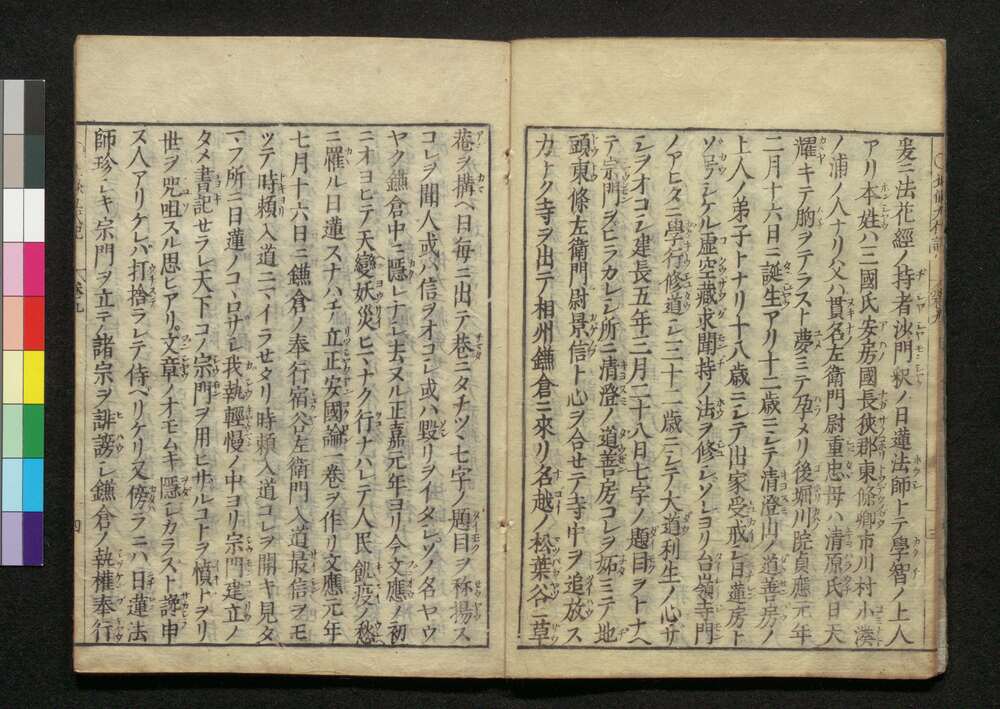 爰ニ法花經ノ持者沙門釈ノ日蓮法師トテ學智ノ上人
アリ本姓ハ三國氏安房國長狹郡東條郷市川村小湊
ノ浦ノ人ナリ父ハ貫名左衛門尉重忠母ハ清原氏日天
耀キテ胸ヲテラスト夢ミテ孕メリ後堀川院貞應元年
二月十六日ニ誕生アリ十二歳ニシテ清澄山ノ道善房ノ
上人ノ弟子トナリ十八歳ニシテ出家受戒シ日蓮房ト
ソ号シケル虚空藏求聞持ノ法ヲ修シソレヨリ台嶺寺門
ノアヒタニ學行修道シ三十二歳ニシテ大道利生ノ心サ
シヲオコシ建長五年三月二十八日七字ノ題目ヲトナヘ
テ宗門ヲヒラカレシ所ニ清澄ノ道善房コレヲ妬ミテ地
頭東條左衛門尉景信ト心ヲ合せテ寺中ヲ追放ス
力ナク寺ヲ出テ相州鎌倉ニ來リ名越ノ松葉谷ニ草
菴ヲ構ヘ日毎ニ出テ巷ニタチツヽ七字ノ題目ヲ称揚ス
コレヲ聞人或ハ信ヲオコシ或ハ毀リヲイタシソノ名ヤウ
ヤク鎌倉中ニ隱レナシ去ヌル正嘉元年ヨリ今文應ノ初
ニオヨヒテ天變妖災ヒマナク行ナハレテ人民飢疫ノ愁
ニ罹ル日蓮スナハチ立正安國論一巻ヲ作リ文應元年
七月十六日ニ鎌倉ノ奉行宿谷左衛門入道最信ヲモ
ツテ時頼入道ニマイラせタリ時頼入道コレヲ開キ見タ
マフ所ニ日蓮ノコヽロサシ我執輕慢ノ中ヨリ宗門建立ノ
タメ書記せラレ天下コノ宗門ヲ用ヒサルコトヲ憤トヲリ
世ヲ咒咀スル思ヒアリ文章ノオモムキ隱レカラスト讒申
ス人アリケレバ打捨ラレテ侍ベリケリ又傍ラニハ日蓮法
師珍シキ宗門ヲ立テ諸宗ヲ誹謗シ鎌倉ノ執權奉行
四